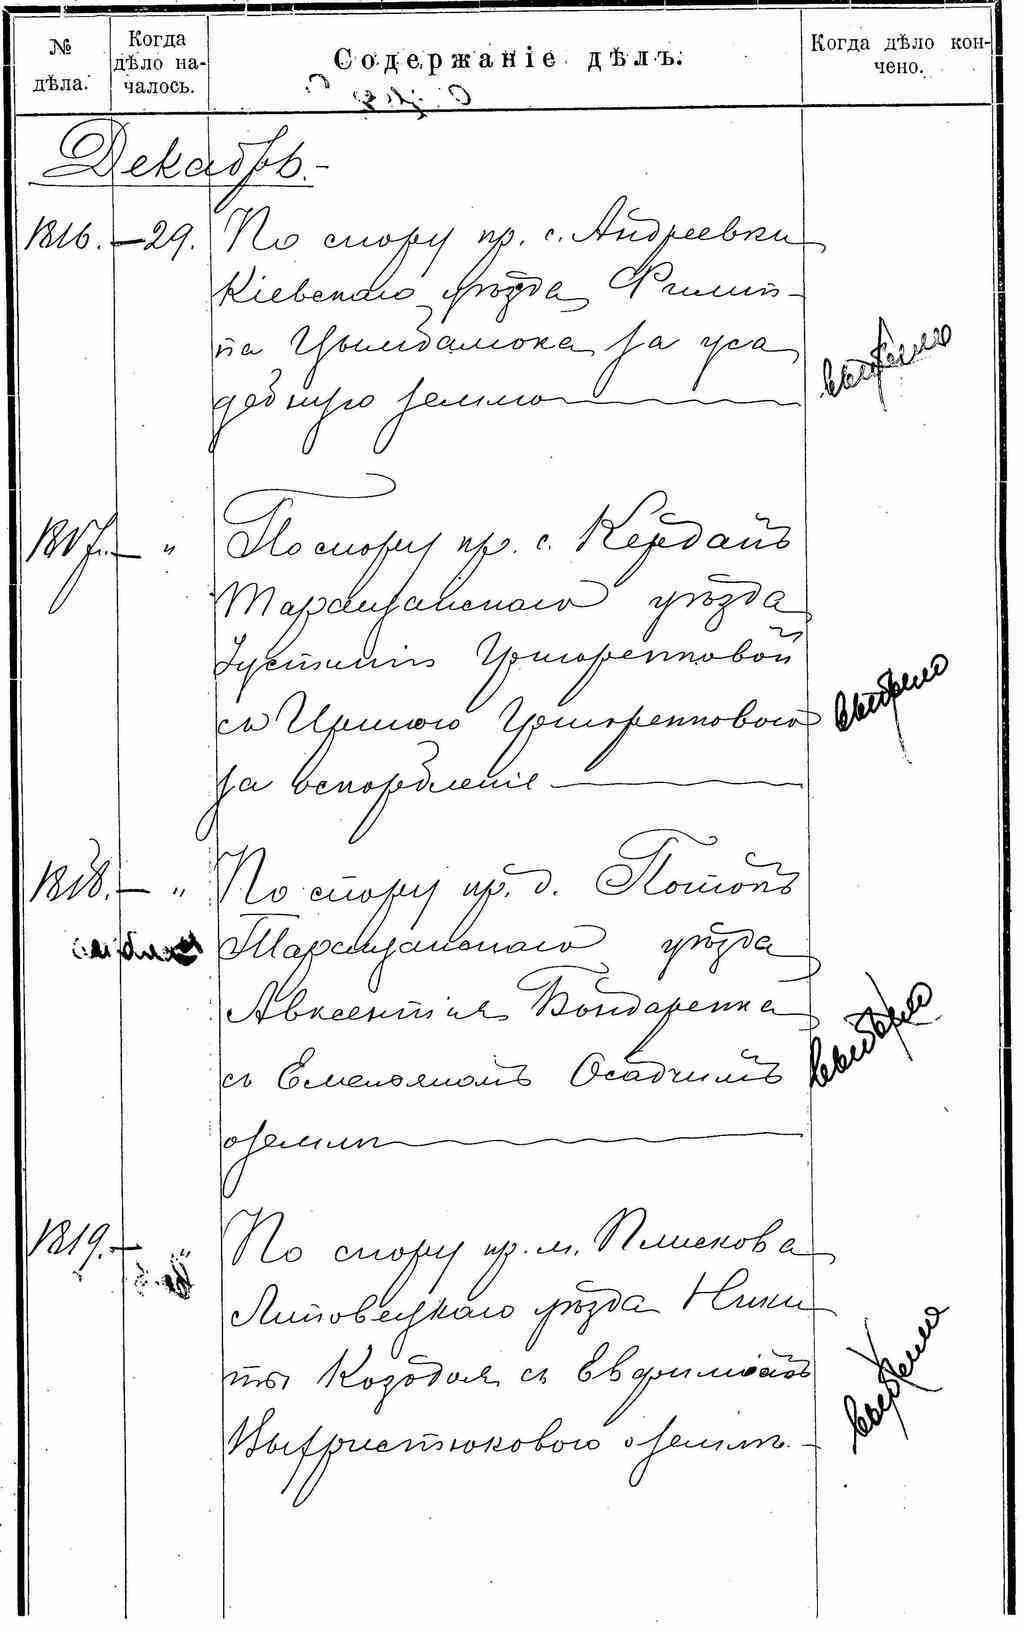 № дѣла.
Когда дѣло началось.
Содержаніе дѣлъ.
Когда дѣло кончено.
Декабрь.-
1816. — 29. По спору кр. с. Андреевки
Кіевскаго уѣзда Филип-
па Цымбалюка за уса
дебную землю
выбыло
1817. — „ По спору кр. с. Кердапъ
Таращанскаго уѣзда
Іустиніи Григоренковой
съ Ириною Григоренковою
за оскорбленіе
выбыло
1818. — „ По спору кр. д. Потокъ
Таращанскаго уѣзда
Авксентія Бондаренка
съ Емельяномъ Осадчимъ
о землѣ
выбыло
1819. — „ По спору кр. м. Плискова
Липовецкаго уѣзда Ники
ты Козодоя съ
о землѣ. -
выбыло